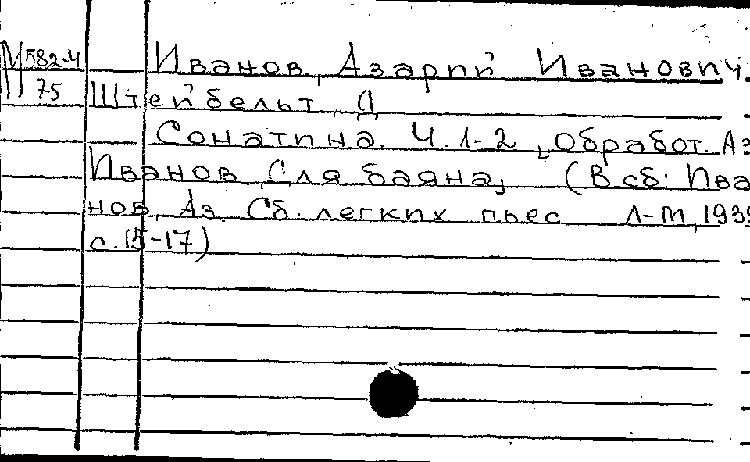 М582-4 Иванов, Азарий Иванович.
75 Штейбельт, Д
Сонатина. Ч. 1-2, Обработ. Аз
Иванов Для баяна, (В сб: Ива
нов, Аз. Сб. легких пьес Л-М, 1939
с. 15-17)